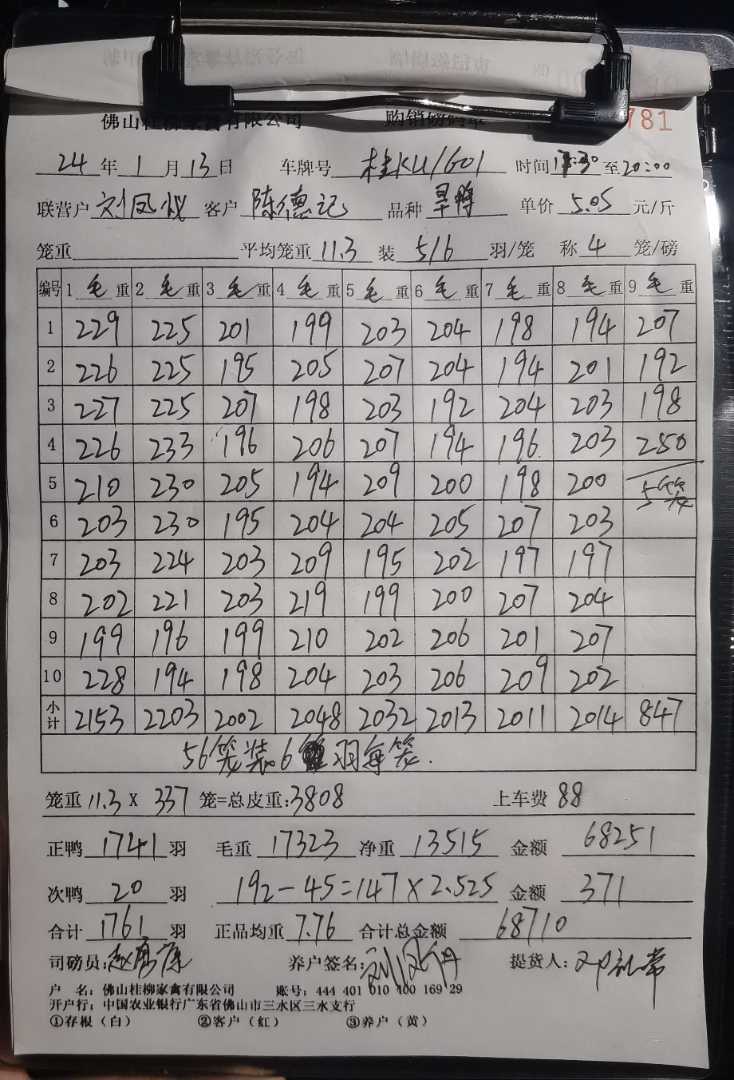 佛山桂柳家禽有限公司 购销磅码单 781
24年1月13日 车牌号 桂KU1601 时间17:30至20:00
联营户 刘凤仪 客户 陈德记 品种 旱鸭 单价 5.05 元/斤
笼重 平均笼重 11.3 装 5/6 羽/笼 称 4 笼/磅
编号 1毛重 2毛重 3毛重 4毛重 5毛重 6毛重 7毛重 8毛重 9毛重
1 229 225 201 199 203 204 198 194 207
2 226 225 195 205 207 204 194 201 192
3 227 225 207 198 203 192 204 203 198
4 226 233 196 206 207 194 196 203 250
5 210 230 205 194 209 200 198 200 5笼
6 203 230 195 204 204 205 207 203
7 203 224 203 209 195 202 197 197
8 202 221 203 219 199 200 207 204
9 199 196 199 210 202 206 201 207
10 228 194 198 204 203 206 209 202
小计 2153 2203 2002 2048 2032 2013 2011 2014 847
56笼装6羽每笼.
笼重 11.3 X 337 笼=总皮重:3808 上车费 88
正鸭 1741 羽 毛重 17323 净重 13515 金额 68251
次鸭 20 羽 192-45=147×2.525 金额 371
合计 1761 羽 正品均重 7.76 合计总金额 68710
司磅员: 养户签名: 提货人:
户 名: 佛山桂柳家禽有限公司 账号: 444 401 010 400 169 29
开户行: 中国农业银行广东省佛山市三水区三水支行
①存根（白） ②客户（红） ③养户（黄）